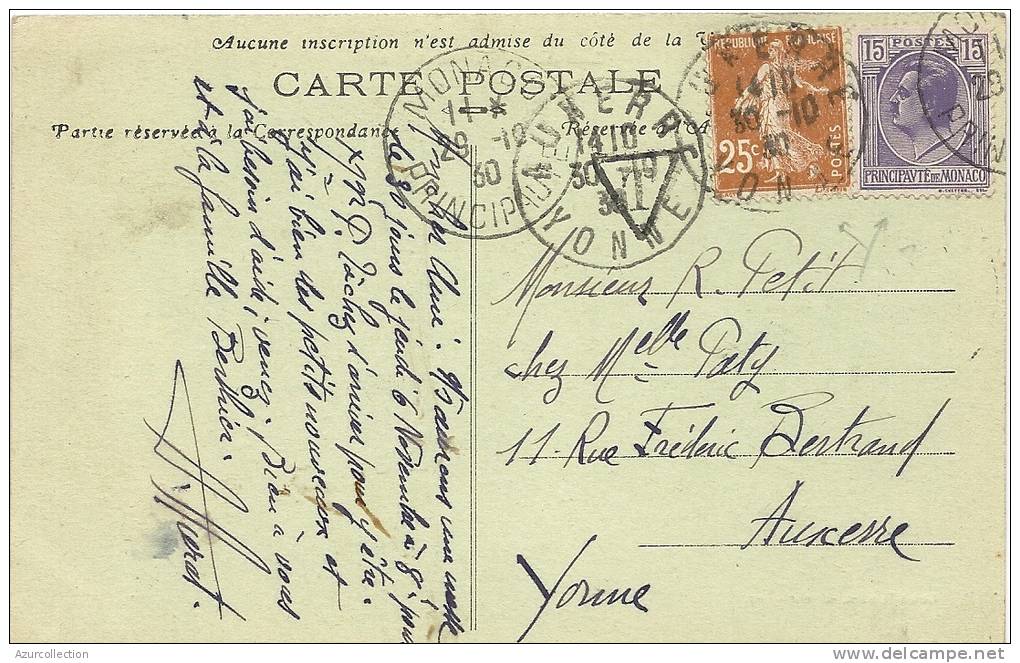 Aucune inscription n'est admise du côté de la
CARTE POSTALE
Partie réservée à la Correspondance
Réservée à l'A
MONACO
11 *
29 -10
30
PRINCIPAUTÉ
AUXERRE
14 10
30 -10
30
YONNE
T
RÉPUBLIQUE FRANÇAISE
25c
POSTES
AUXERRE
14 10
30 -10
30
YONNE
15 POSTES 15
PRINCIPAVTÉ DE MONACO
29
PRIN
Mon cher Ami. Aurons une messe
de 30 jours le jeudi 6 Novembre à 8h pour
Tâchez d'arriver pour y être.
J'ai bien des petits nouveaux et
j'ai besoin d'aide, venez. Bien à vous
et à la famille Berthier.
Monsieur R. Petit
chez Melle Paty
11 Rue Fréderic Bertrand
Auxerre
Yonne
Azurcollection
delcampe.net